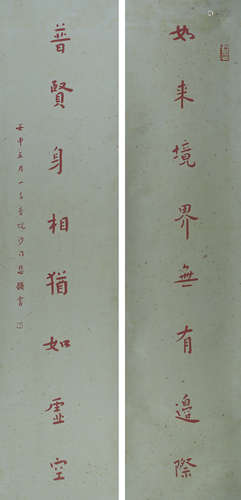 如来境界無有邊際
普賢身相猶如虛空
壬申五月一音